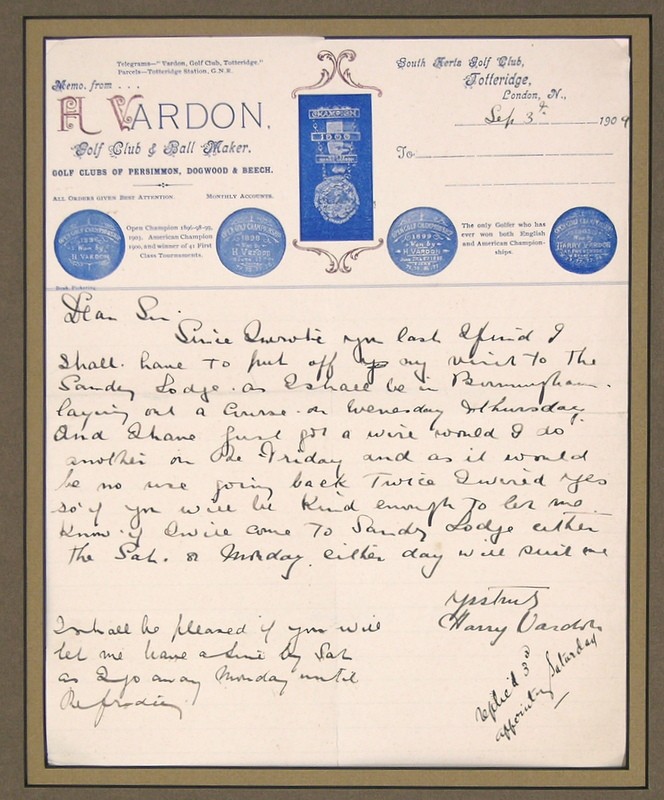 Telegrams—" Vardon, Golf Club, Totteridge."
Parcels—Totteridge Station, G.N.R.
Memo. from . . .
H. VARDON,
Golf Club & Ball Maker.
GOLF CLUBS OF PERSIMMON, DOGWOOD & BEECH.
ALL ORDERS GIVEN BEST ATTENTION. MONTHLY ACCOUNTS.
South Herts Golf Club,
Totteridge,
London, N.,
Sep 3rd 1909
To
CHAMPION
1900
OPEN CHAMPIONSHIP
1896
Won by
H. VARDON
Open Champion 1896-98-99,
1903. American Champion
1900, and winner of 41 First
Class Tournaments.
OPEN GOLF CHAMPIONSHIP
1898
Won by
H. VARDON
OPEN GOLF CHAMPIONSHIP
1899
Won by
H. VARDON
The only Golfer who has
ever won both English
and American Champion-
ships.
Won by
HARRY VARDON
Dear Sir.
Since I wrote you last I find I
shall. have to put off my visit to the
Sandy Lodge. as I shall be in Birmingham.
laying out a Course. on Wenesday & Thursday.
And I have just got a wire would I do
another on the Friday and as it would
be no use going back Twice I wired yes
so if you will be Kind enough to let me
Know if I will come To Sandy Lodge either
the Sat. or Monday. either day will suit me
Yrs truly
Harry Vardon
I shall be pleased if you will
let me have a line by Sat
as I go away Monday until
replie'd 3rd
appointing Saturday